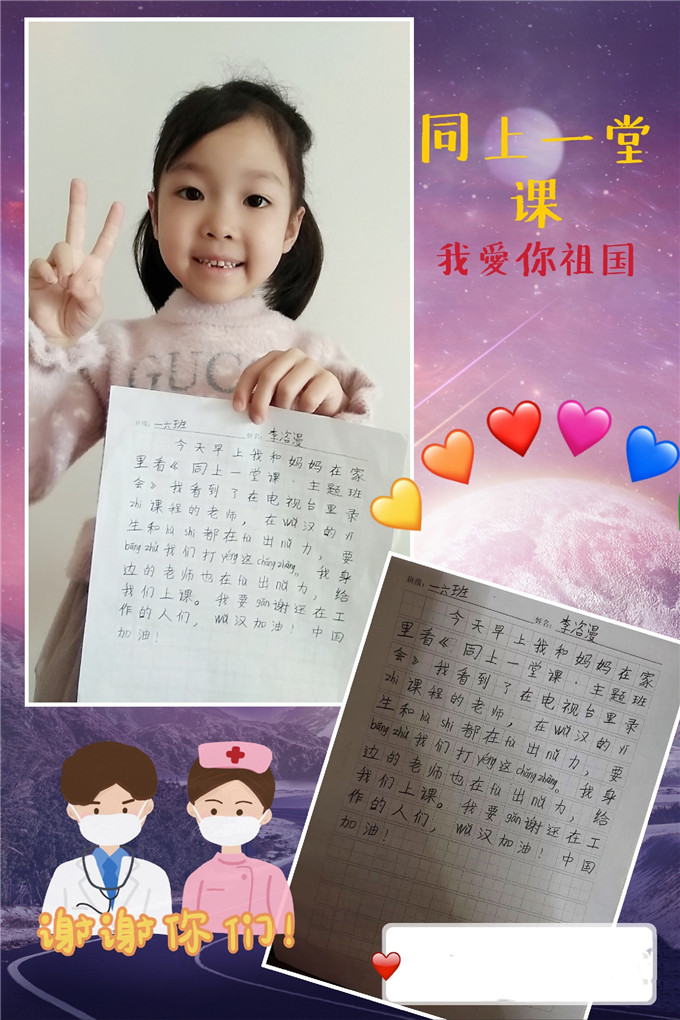 同上一堂
课
我愛你祖国
GUCC
班级：一六班 姓名：李咨漫
今天早上我和妈妈在家
里看《同上一堂课·主题班
会》我看到了在电视台里录
zhì课程的老师，在wǔ汉的yī
生和hù shi都在fù出nǔ力，要
bāng zhù我们打yíng这chǎng zhàng。我身
边的老师也在fù出nǔ力，给
我们上课。我要gǎn谢还在工
作的人们，wǔ汉加油！中国
加油！
班级：一六班 姓名：李咨漫
今天早上我和妈妈在家
里看《同上一堂课·主题班
会》我看到了在电视台里录
zhì课程的老师，在wǔ汉的yī
生和hù shi都在fù出nǔ力，要
bāng zhù我们打yíng这chǎng zhàng。我身
边的老师也在fù出nǔ力，给
我们上课。我要gǎn谢还在工
作的人们，wǔ汉加油！中国
加油！
谢谢你们！